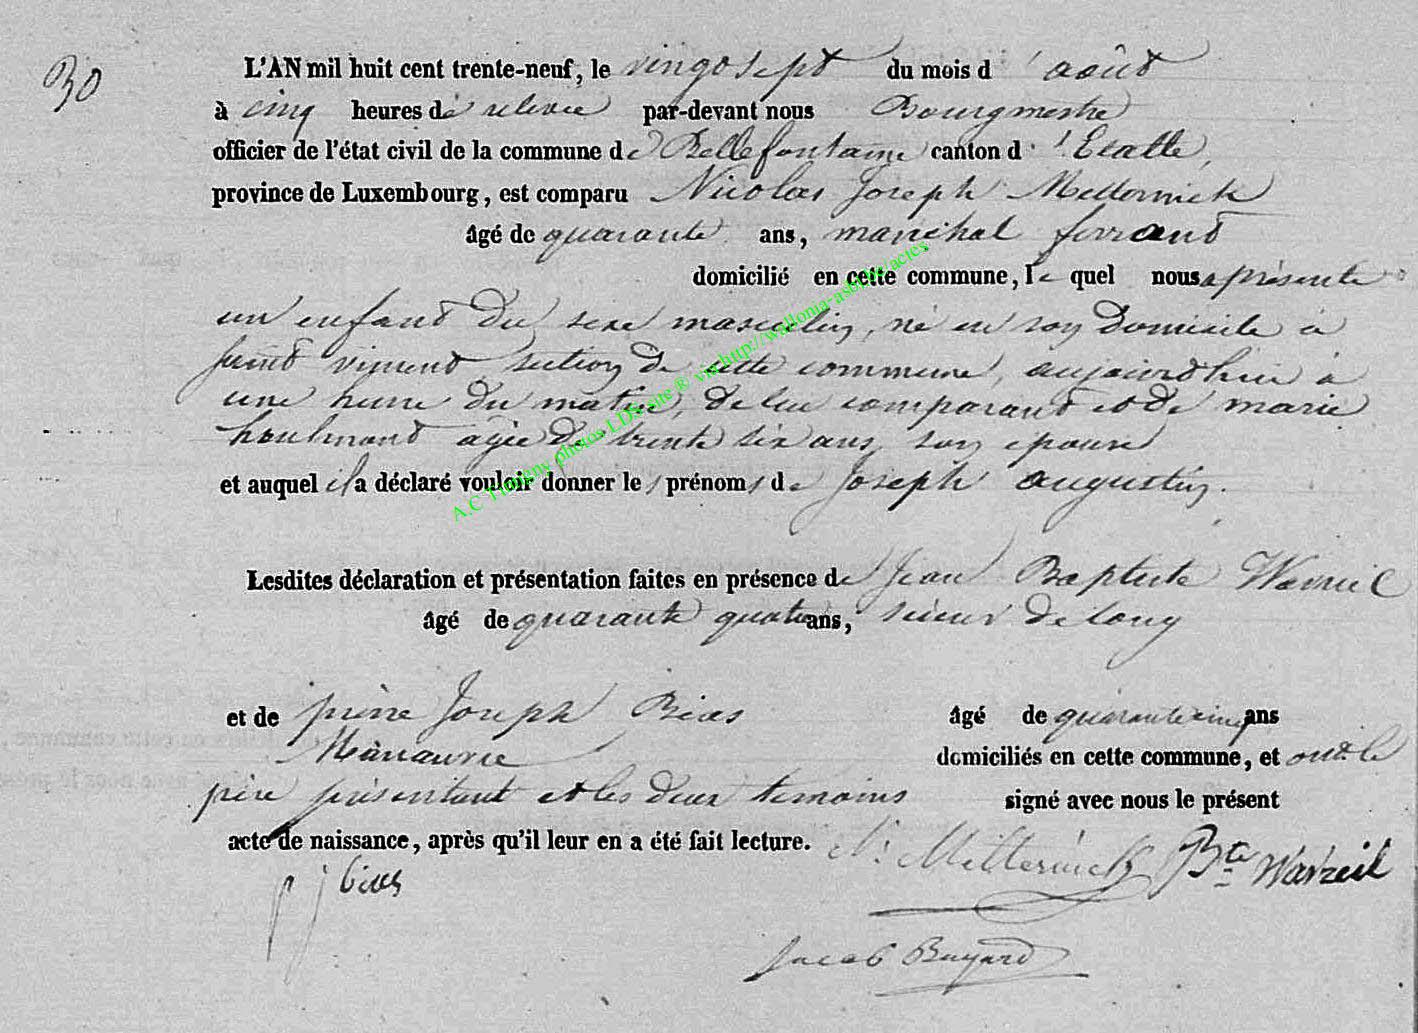 30
L'AN mil huit cent trente-neuf, le vingt sept du mois d'août
à cinq heures de relevée par-devant nous Bourgmestre
officier de l'état civil de la commune de Bellefontaine canton d'Etalle,
province de Luxembourg, est comparu Nicolas Joseph
âgé de quarante ans, maréchal ferrant
domicilié en cette commune, le quel nous a présenté
un enfant du sexe masculin, né en son domicile à
saint vincent section de cette commune, aujourd'huie à
une heure du matin, de lui comparant et de marie
houlmont agée de trente six ans son epouse
et auquel il a déclaré vouloir donner les prénoms de Joseph augustin.
Lesdites déclaration et présentation faites en présence de Jean Baptiste
âgé de quarante quatre ans, sieur de long
et de pierre Joseph Bias âgé de quarante cinq ans
domiciliés en cette commune, et ont le
père présentant et les deux temoins signé avec nous le présent
acte de naissance, après qu'il leur en a été fait lecture.
N. Bte Warzeil
p j bias
Jacob Buyard
A.C Tintigny photos LDS site ® via http://wallonia-asbl.be/actes